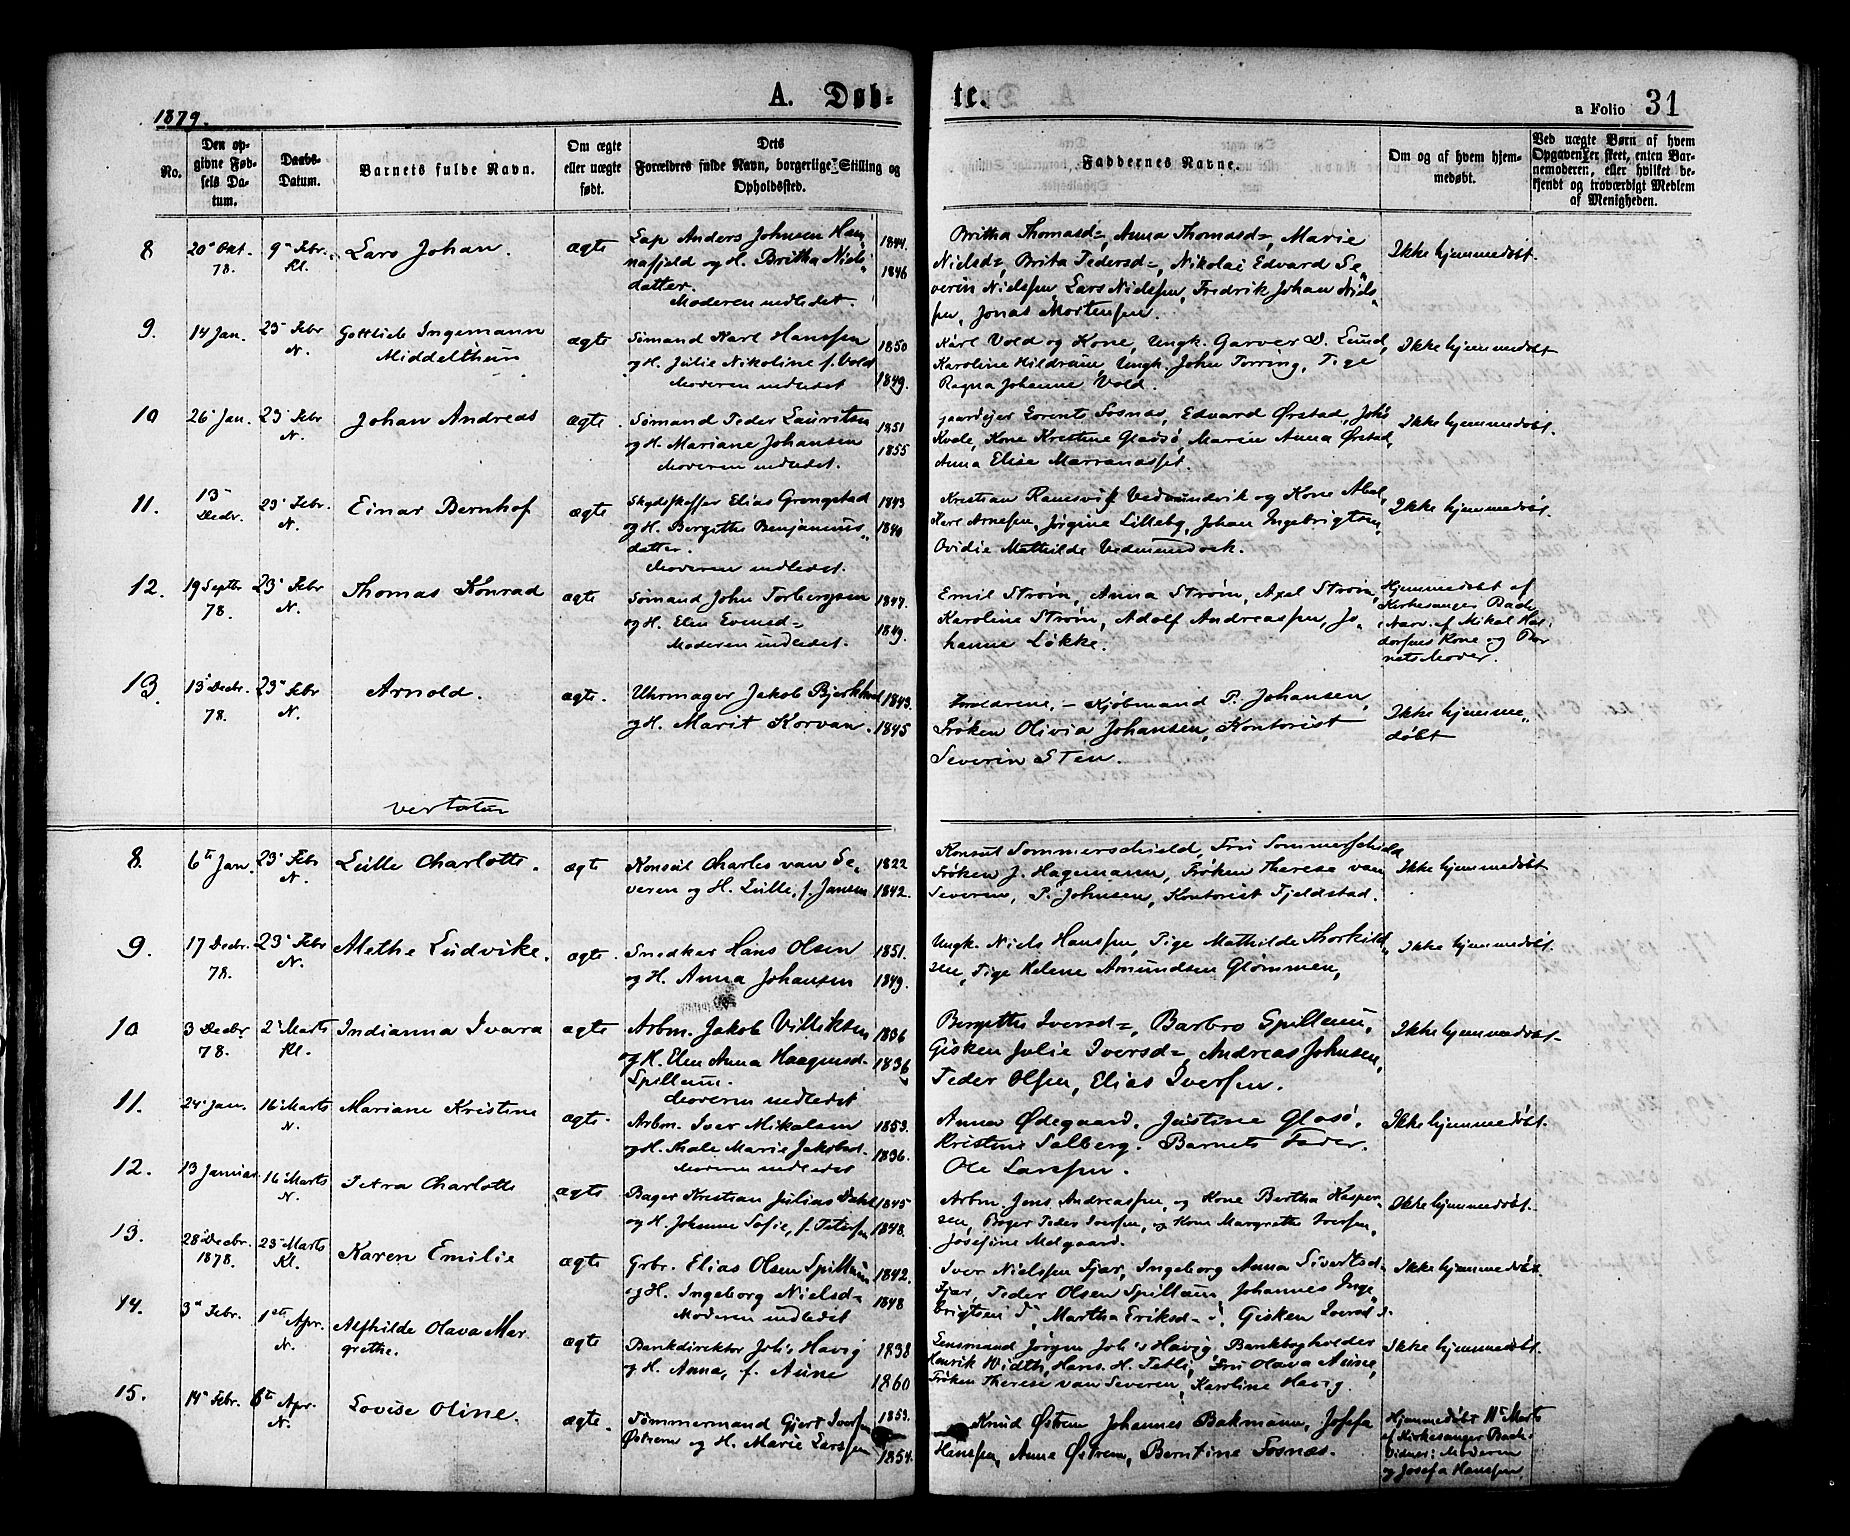 1879.
A. Døb-
te.
a Folio 31
No.
Den op-
givne Fød-
sels Da-
tum.
Daabs-
Datum.
Barnets fulde Navn.
Om ægte
eller uægte
født.
Dets
Forældres fulde Navn, borgerlige Stilling og
Opholdssted.
Faddernes Navne.
Om og af hvem hjem-
medøbt.
Ved uægte Børn af hvem
Opgaven er skeet, enten Bar-
nemoderen, eller hvilket be-
kjendt og troværdigt Medlem
af Menigheden.
8 20de Okt. 78. 9de Febr. Kl. Lars Johan. ægte
Lap Anders Johnsen Han- 1844.
nafjeld og H. Britha Niels- 1846
datter.
Moderen indledet.
Britha Thomasd=, Anna Thomasd=, Marie
Nielsd=, Brita Pedersd=, Nikolai Edvard Se-
verin Nielssen, Lars Nielssen, Fredrik Johan Niels-
sen, Jonas Mortensen.
Ikke hjemmedøbt.
9. 14 Jan. 23 Febr N. Gottlieb Ingemann
Middelthun
ægte
Sømand Karl Hanssen 1850
og H. Julie Nikoline f. Vold
Moderen indledet 1849.
Karl Vold og Kone, Ungk. Garver D. Lund,
Karoline Hildrum, Ungk. John Tørring, Pige
Ragna Johanne Vold.
Ikke hjemmedøbt
10 26 Jan. 23 Febr N. Johan Andreas ægte.
Sømand Peder Lauritsen 1851
og H. Mariane Johansen 1855
Moderen indledet.
Gaardejer Lorents Fosnæs, Edvard Ørstad, Johs
Kvale, Kone Kristine Gladsø, Maren Anna Ørstad,
Anna Elise
Ikke hjemmedøbt.
11. 13 Decbr. 23 Febr. N. Einar Bernhof ægte
Skydsskaffer Elias Grongstad 1843
og H. Bergitte Benjamins- 1840
datter.
Moderen indledet.
Kristian og Kone Abel,
Karl Arnesen, Jørgine Lilleby, Johan Ingebrigtsen,
Ovidie Mathilde
Ikke hjemmedøbt.
12. 19 Septbr 78. 23 Febr N. Thomas Konrad ægte
Sømand John Torbergsen 1847.
og H. Elen Evensd= 1849.
Moderen indledet.
Emil Strøm, Anna Strøm, Axel Strøm,
Karoline Strøm, Adolf Andreassen, Jo-
hanne Løkke.
Hjemmedøbt af
Kirkesanger Bach
i Nærv. af Mikal
Kone og Bar-
nets Moder.
13. 13 Decbr. 78. 23 Febr N. Arnold. ægte.
Uhrmager Jakob Bjørklund 1843.
og H. Marit Korvan. 1845
Forældrene, - Kjøbmand P. Johansen,
Frøken Olivia Johansen, Kontorist
Severin Sten.
Ikke hjemme-
døbt
vertatur
8. 6te Jan. 23 Febr N. Lulle Charlotte. ægte
Konsul Charles van Se- 1822
veren og H. Lulle, f. Jansen 1842.
Konsul Sommerschield, Fru Sommerschield
Frøken J. Hagemann, Frøken Therese van
Severen, P. Johnsen, Kontorist Fjeldstad.
Ikke hjemmedøbt
9. 17 Decbr. 78. 23 Febr N. Alethe Ludvike. ægte.
Snedker Hans Olsen 1851.
og H. Anna Johansen 1849.
Ungk. Niels Hanssen, Pige Mathilde Thorkild-
sen, Pige Helene Amundsen Glømmen,
Ikke hjemmedøbt.
10 3 Decbr 78. 2 Marts Kl. Indianna Ivara ægte
Arbm. Jakob Villiksen 1836
og H. Elen Anna Haagensd. 1836
Spillum.
Moderen indledet
Bergitte Iversd=, Barbro Spillum,
Gisken Julie Iversd=, Andreas Johnsen,
Peder Olsen, Elias Iversen.
Ikke hjemmedøbt.
11. 24 Jan. 16 Marts N. Mariane Kristine ægte.
Arbm. Iver Mikalsen 1853.
og H. Thale Marie Jakobsd. 1836.
Moderen indledet
Anna Ødegaard, Justine Glasø,
Kristine Salberg. Barnets Fader.
Ole Larssen.
Ikke hjemmedøbt.
12. 13 Januar 16 Marts N. Petra Charlotte ægte
Bager Kristian Julius Dahl 1845
og H. Johanne Sofie, f. Petersen 1848.
Arbm Jens Andreassen, og Kone Bertha Kasper-
sen, Bager Peder Iversen, og Kone Margrethe Iversen,
Josefine Melgaard.
Ikke hjemmedøbt.
13. 28 Decbr. 1878. 23 Marts Kl. Karen Emilie ægte
Grbr. Elias Olsen Spillum 1842.
og H. Ingeborg Nielsd= 1848
Moderen indledet
Iver Nielssen Fjær, Ingeborg Anna Sivertsd=
Fjær, Peder Olsen Spillum, Johannes Inge-
brigtsen , Martha Eriksd= , Gisken Iversd
Ikke hjemmedøbt.
14. 3de Febr. 1ste Apr. N. Alfhilde Olava Mar-
grethe.
ægte
Bankdirektør Joh's Havig 1838
og H. Anna, f. Aune 1860
Lensmand Jørgen Joh's Havig, Bankbogholder
Henrik Width, Hans H. Tetli, Fru Olava Aune,
Frøken Therese van Severen, Karoline Havig.
Ikke hjemmedøbt.
15. 14 Febr. 6te Apr. N. Lovise Oline. ægte.
Tømmermand Gjert Iversen 1853.
Østrem og H. Marie Larssen 1854.
Knud Østrem, Johannes Bakmann, Josefa
Hanssen, Anna Østrem, Berntine Fosnæs.
Hjemmedøbt 11 Marts
af Kirkesanger Bach.
Vidner: Moderen
og Josefa Hanssen.